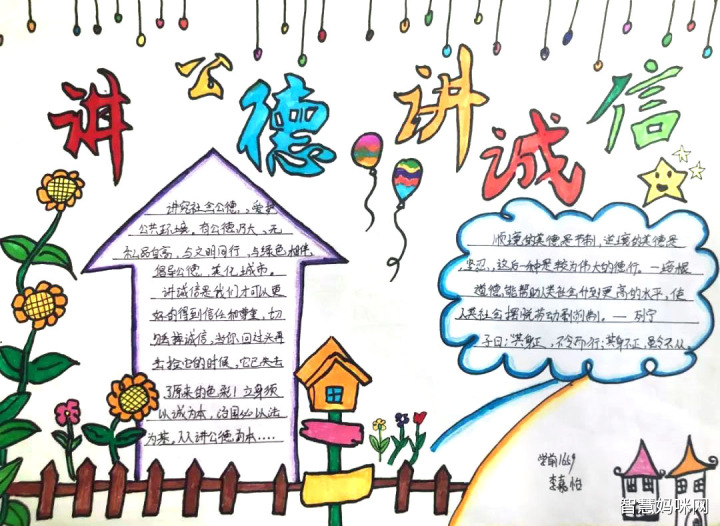 讲公德讲诚信
讲究社会公德,爱护
公共环境。有公德乃大、无
私品自高,与文明同行、与绿色相伴
倡导公德,美化城市。
讲诚信是我们才可以更
好的得到信任和尊重,切
选择诚信,当你回过头再
去捡它的时候,它已失去
了原来的色彩!立身须
以诚为本,治国必以法
为基。人人讲公德为本....
顺境的美德是节制,逆境的美德是
坚忍,这后一种是较为伟大的德行。—培根
道德能帮助人类社会升到更高的水平,使
人类社会摆脱劳动剥削制。— 列宁
子曰:“其身正,不令而行;其身不正,虽令不从。
学前1659
李嘉怡
智慧妈咪网